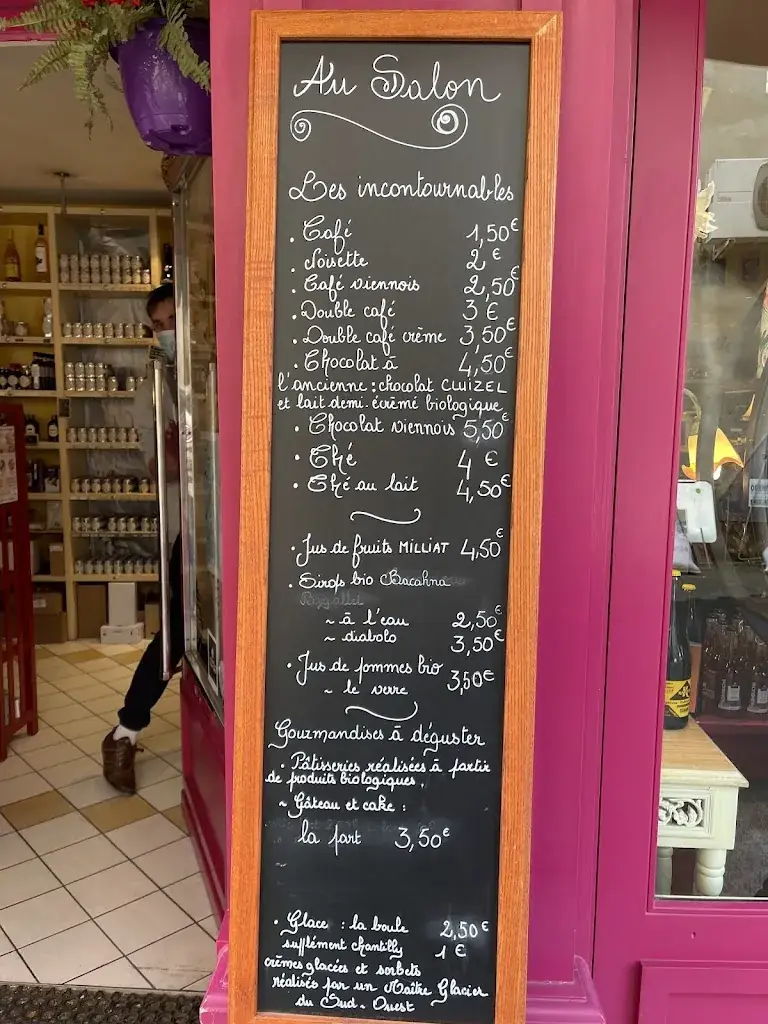 Au Salon
Les incontournables
. Café 1,50€
. Noisette 2 €
. Café viennois 2,50€
. Double café 3 €
. Double café crème 3,50€
. Chocolat à 4,50€
l'ancienne : chocolat CLUIZEL
et lait demi-écrémé biologique
. Chocolat viennois 5,50€
. Thé 4 €
. Thé au lait 4,50€
. Jus de fruits MILLIAT 4,50€
. Sirops bio Bacahna
~ à l'eau 2,50€
~ diabolo 3,50€
. Jus de pommes bio
~ le verre 3,50€
Gourmandises à déguster
. Pâtisseries réalisées à partir
de produits biologiques.
~ Gâteau et cake :
la part 3,50€
. Glace : la boule 2,50€
supplément chantilly 1 €
crèmes glacées et sorbets
réalisés par un Maître Glacier
du Sud-Ouest